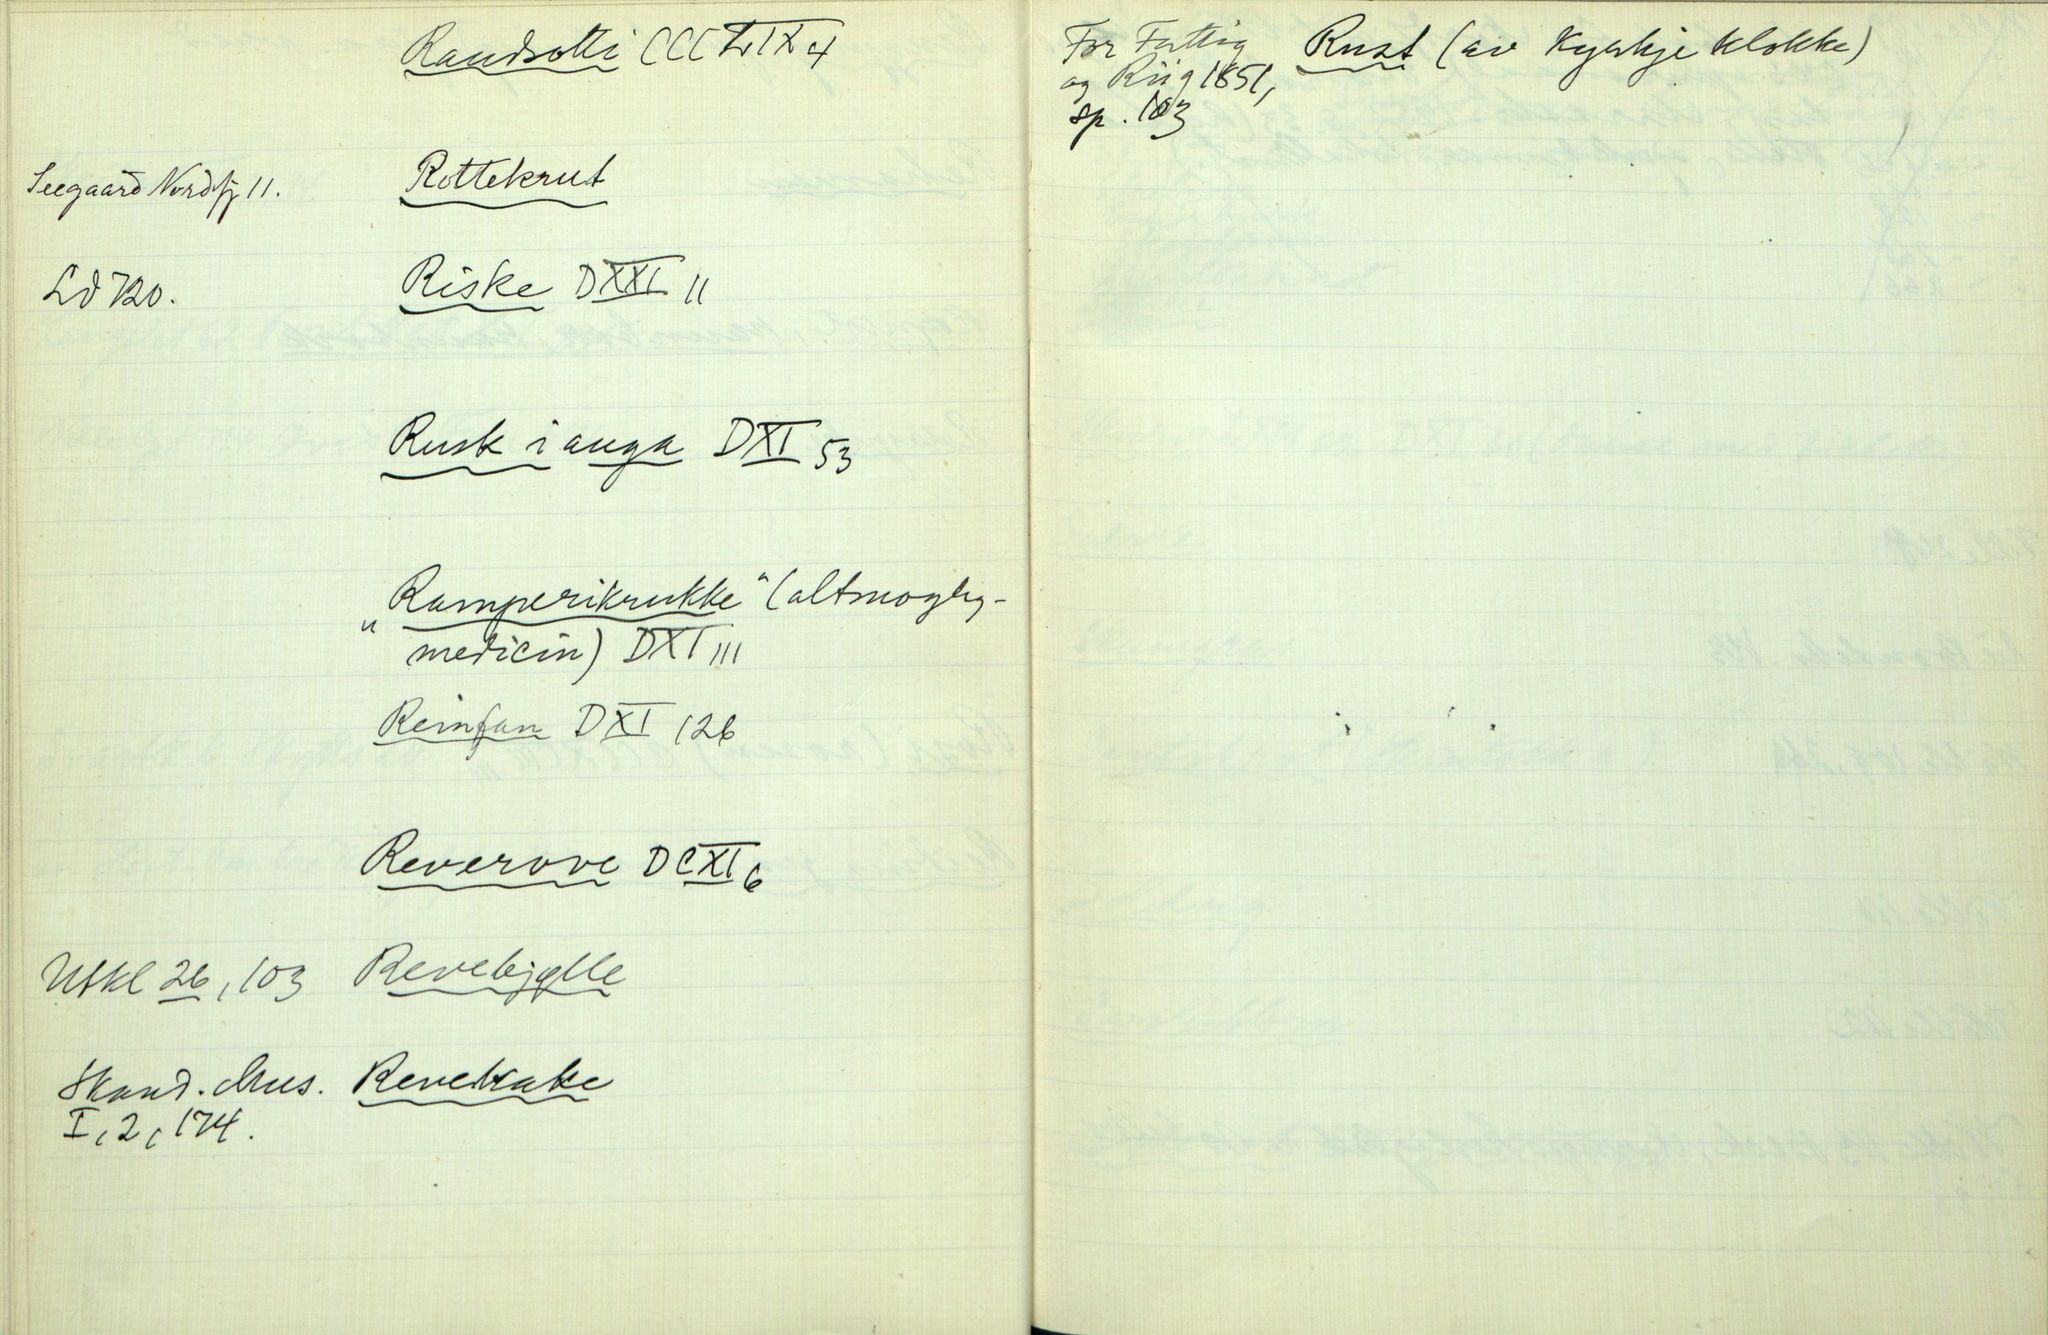 Raudsotti CCCLIX 4
Seegaard Nordfj 11. Rottekrut
Ld 720. Riske DXXI 11
Rusk i auga DXI 53
"Ramperikrukke" (altmogleg-
medicin) DXI 111
Reinfan DXI 126
Reverove DCXI 6
Utkl 26, 103 Revebjølle
Skand. Mus. Revekake
I, 2, 174.
For Fattig Rust (av Kyrkjeklokke)
og Riig 1851,
sp. 103